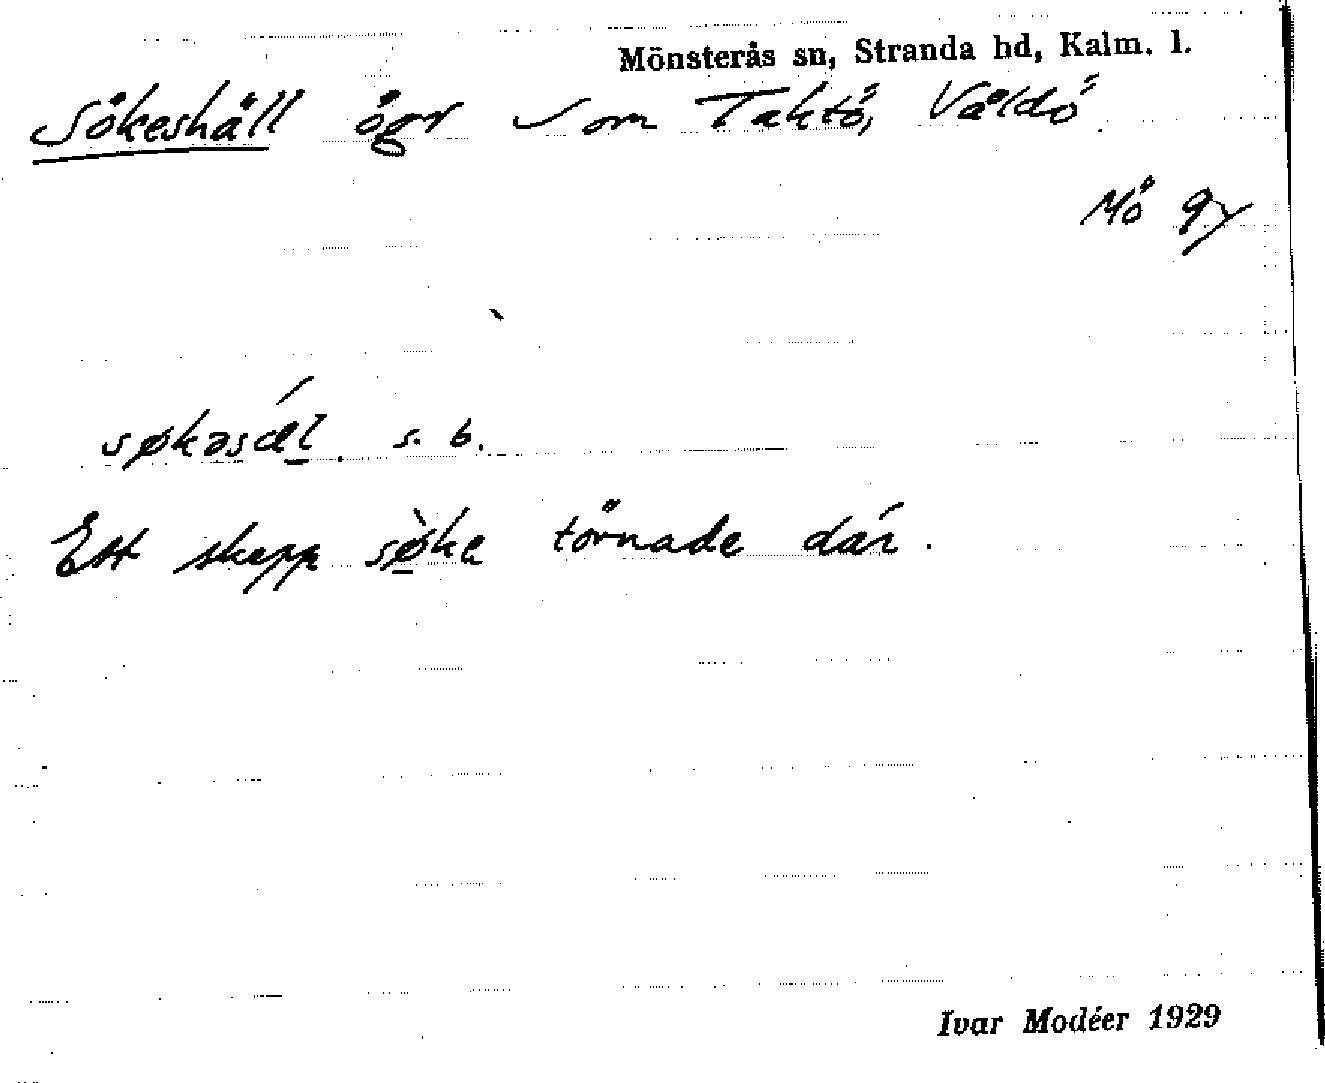 Mönsterås sn, Stranda hd, Kalm. l.
Sökeshäll ögr S om Taktö, Våldö
Mö qy
søkəsǽl. s. b.
Ett skepp sø̀ke törnade där.
Ivar Modéer 1929